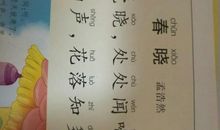 chūn xiǎo
春晓
孟浩然
xiǎo chù chù wén
晓，处处闻
shēng huā luò zhī
声，花落知